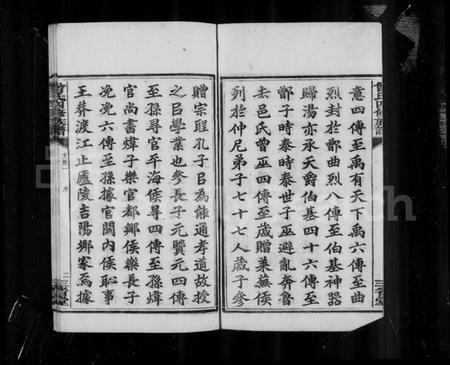 意四傳至禹有天下禹六傳至曲
烈封於鄫曲烈八傳至伯基神器
歸湯亦承天爵伯基四十六傳至
鄫子時泰時泰世子巫避亂奔魯
去邑氏曾巫四傳至歲贈萊蕪侯
列於仲尼弟子七十七人歲子參
贈宗聖孔子㠯為能通孝道故授
之㠯學業也參長子元嗣元四傳
至孫尋官平海侯尋四傳至孫煒
官尚書煒子樂官都鄉侯樂長子
浼浼六傳至孫據官關內侯恥事
王莽渡江止廬陵吉陽鄉家焉據
曾氏四修族譜